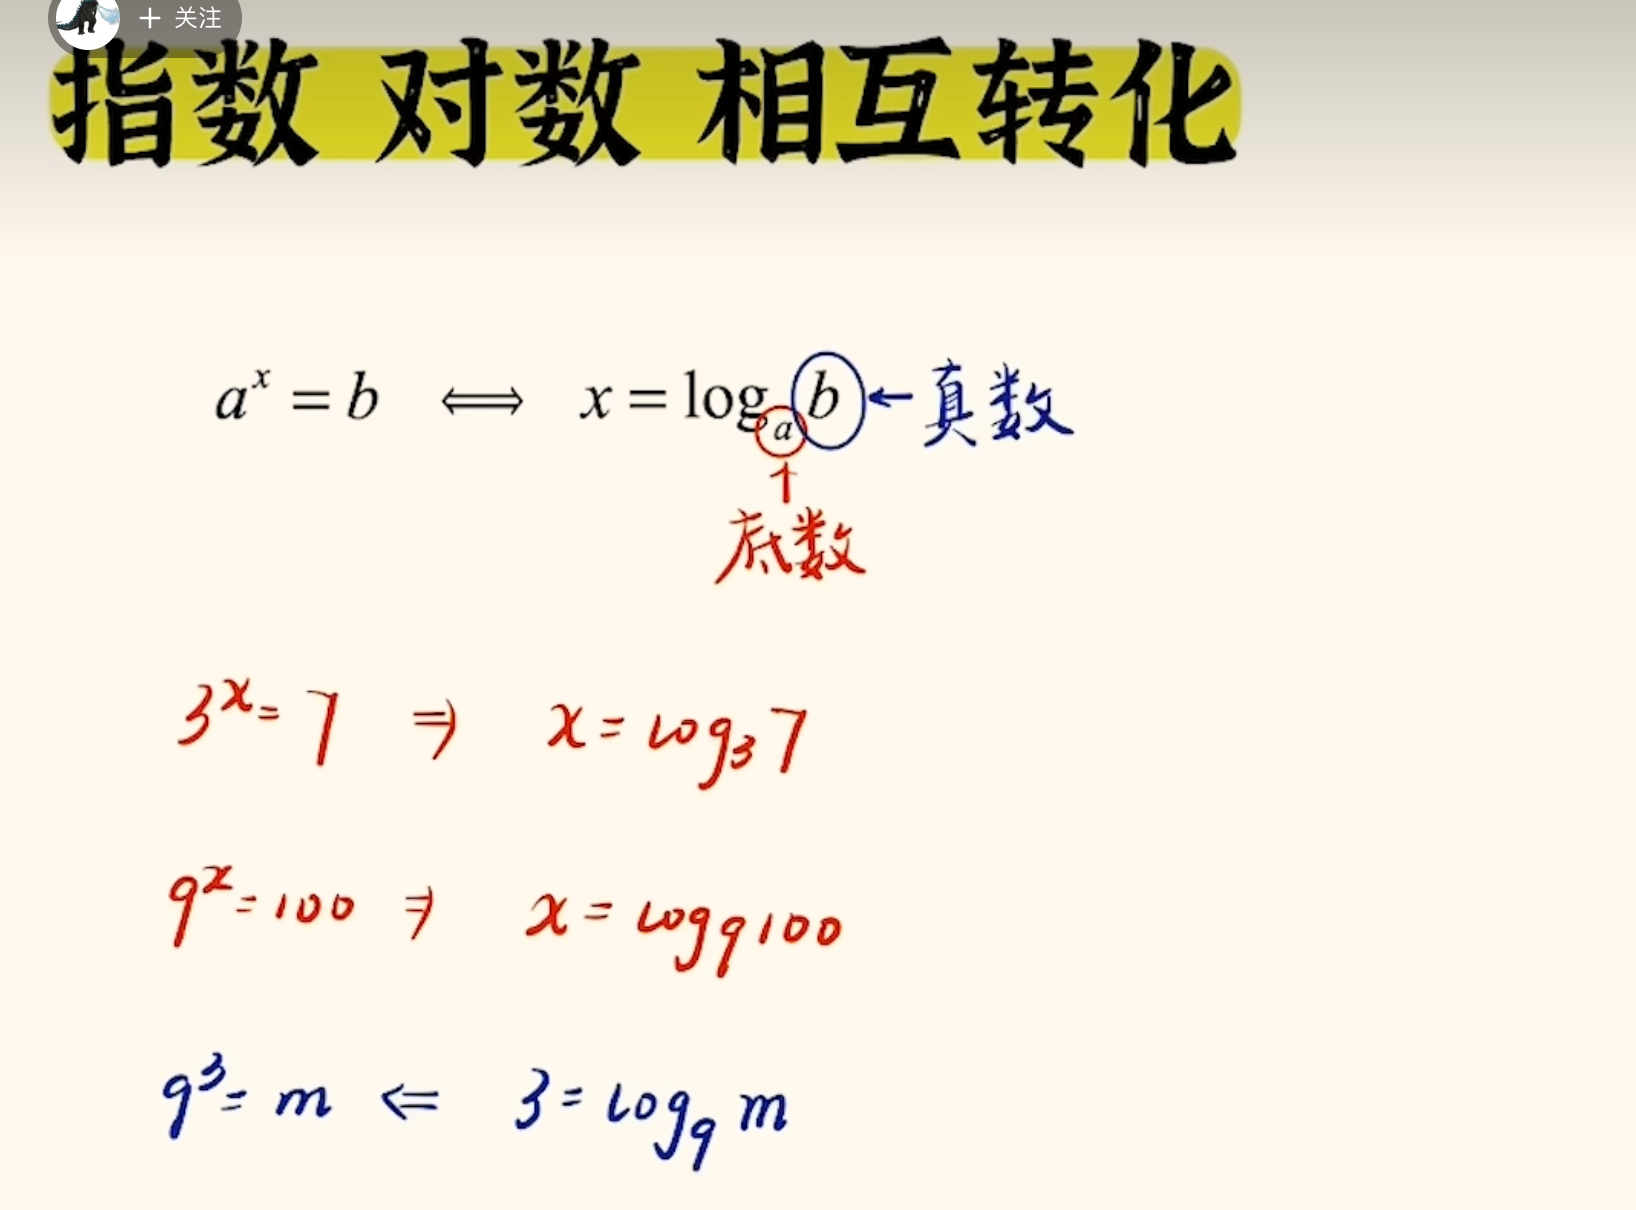 + 关注
指数 对数 相互转化
aˣ = b ⟺ x = logₐ b ← 真数
↑
底数
3ˣ = 7 ⇒ x = log₃ 7
9ˣ = 100 ⇒ x = log₉ 100
9³ = m ⇐ 3 = log₉ m